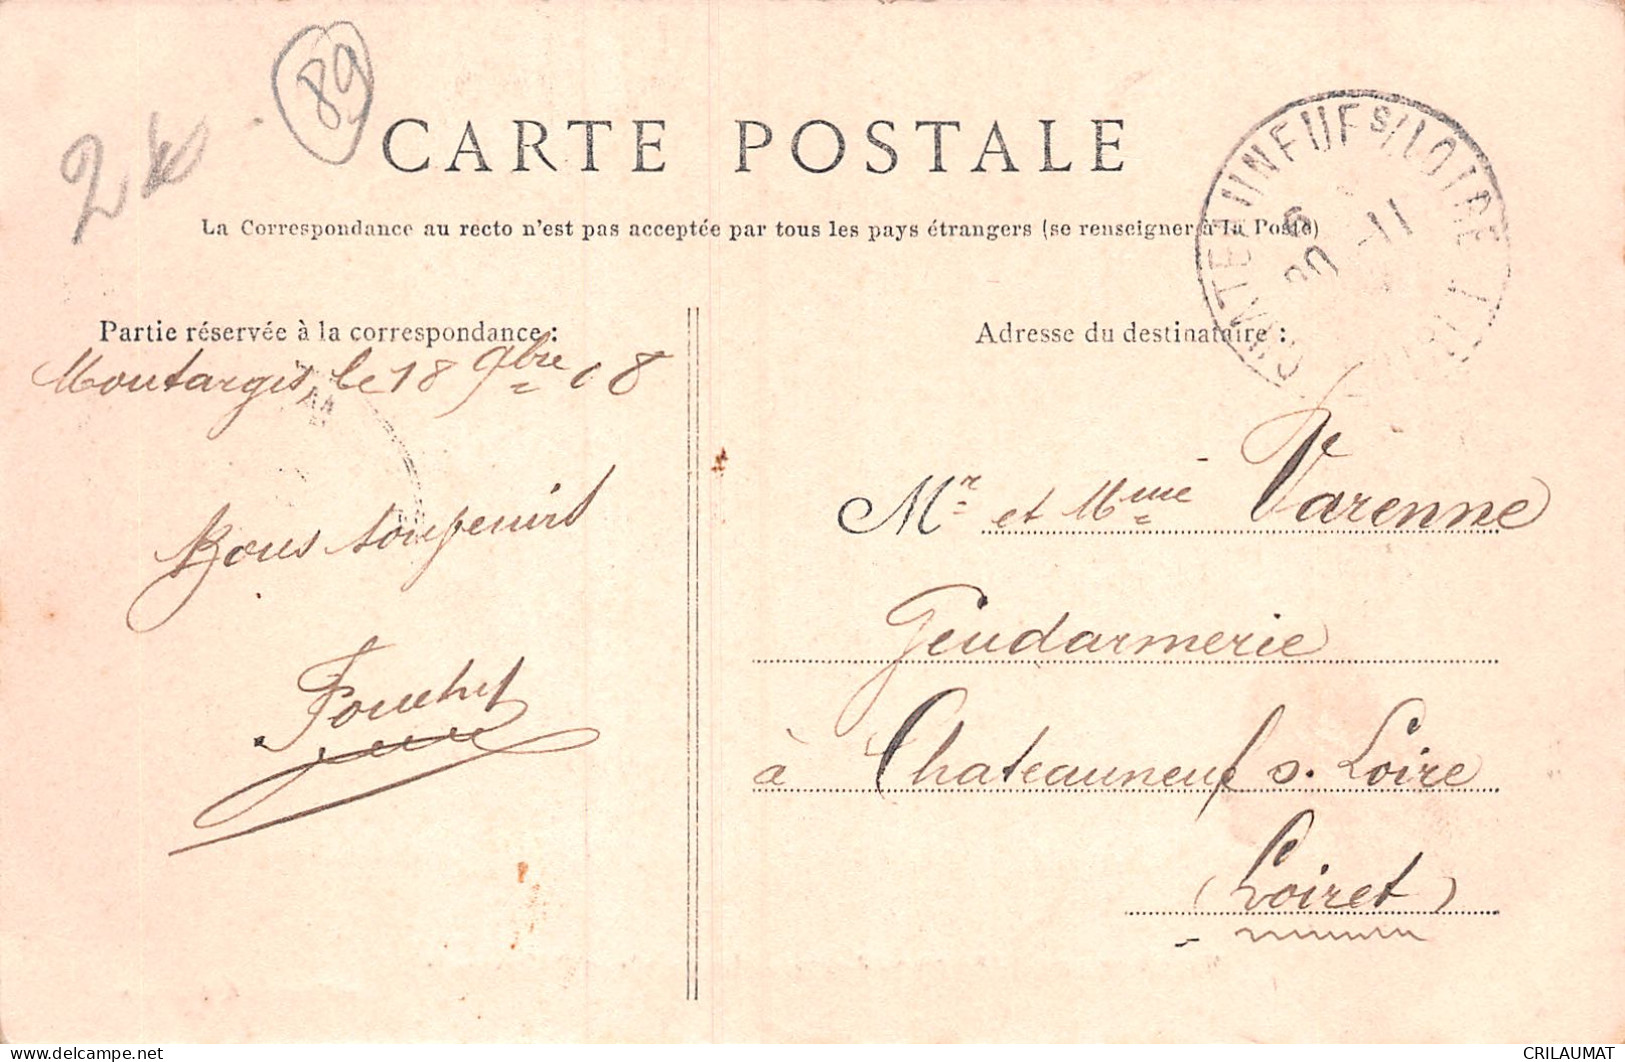 2
89
CARTE POSTALE
La Correspondance au recto n'est pas acceptée par tous les pays étrangers (se renseigner à la Poste)
CHATEAUNEUF S/LOIRE
20 -11
Partie réservée à la correspondance :
Montargis, le 18 9bre 08
Bons souvenirs
Adresse du destinataire :
Mr et Mme Varenne
Gendarmerie
à Chateauneuf s. Loire
(Loiret)
delcampe.net
CRILAUMAT